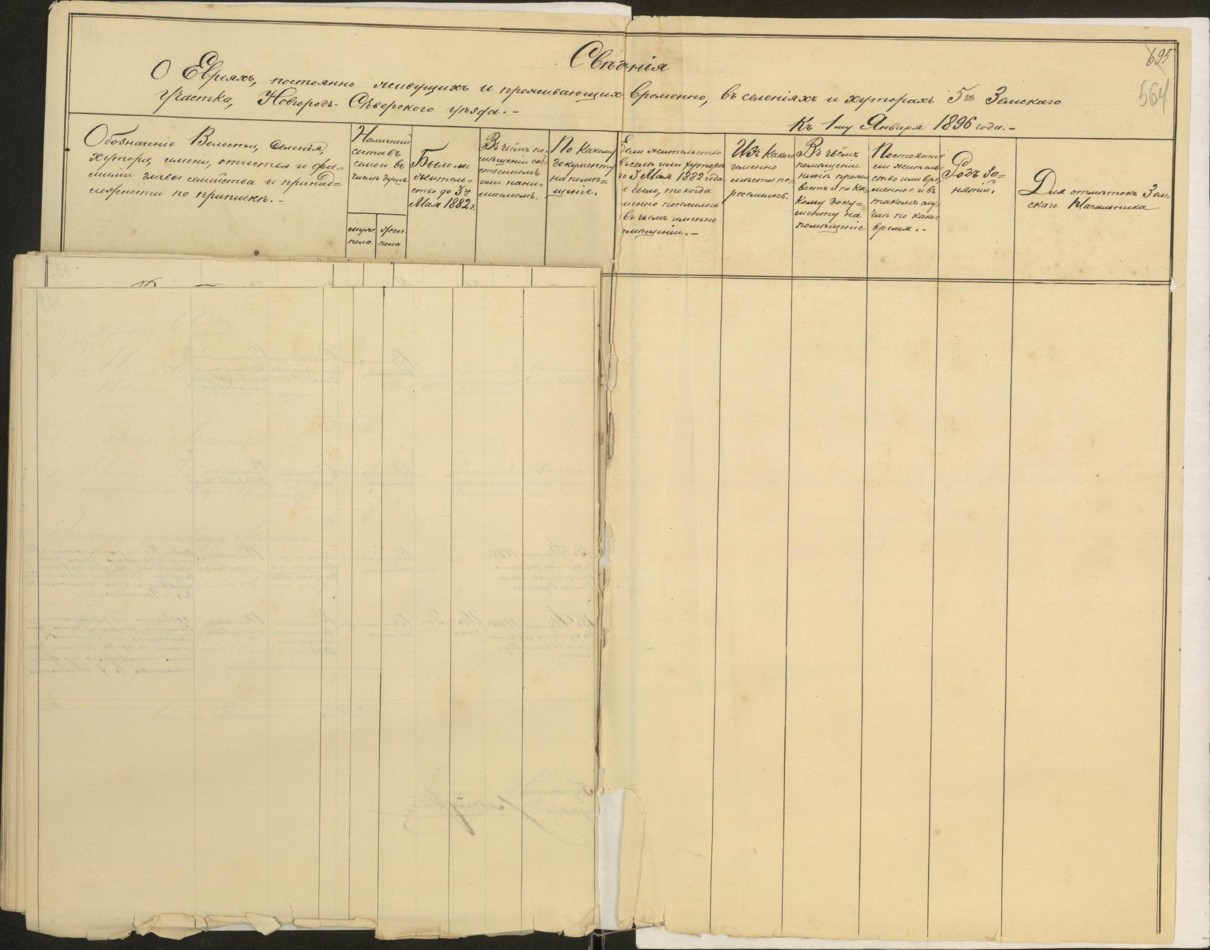 695
564
Свѣдѣнія
О Евреяхъ, постоянно живущихъ и проживающихъ временно, въ селеніяхъ и хуторахъ 5го Земскаго
участка, Новгородъ-Сѣверского уѣзда.-
Къ 1му Января 1896 года.-
Обозначеніе Волости, селенія,
хутора, имени, отчества и фа-
миліи главы семейства и принад-
лежности по припискѣ.-
Наличный
составъ
семьи въ
числѣ душъ
мужс.
пола
женс.
пола
Было ли
житель-
ство до 3го
Мая 1882 г.
Въ чьемъ по-
мѣщеніи соб-
ственномъ
или нани-
маемомъ.
По какому
документу
на помѣ-
щеніе.
Если жительство
въ селѣ или хуторѣ
до 3 Мая 1882 года
не было, то когда
именно поселился
въ чьемъ именно
помѣщеніи.-
Изъ какого
именно
мѣста пе-
реселился.
Въ чьемъ
помѣщеніи
нынѣ прожи-
ваетъ и по ка-
кому доку-
менту на
помѣщеніе
Постоянное
ли житель-
ство или вре-
менное и въ
такомъ слу-
чаѣ по какое
время.-
Родъ за-
нятій.
Для отмѣтокъ Зем-
скаго Начальника